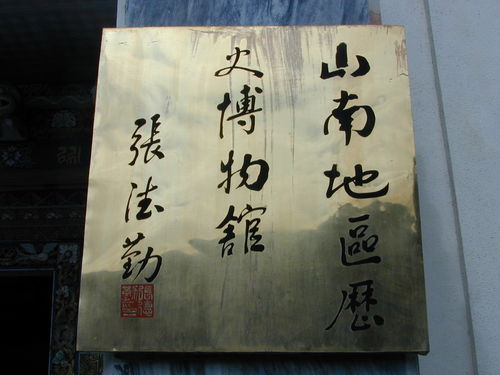 山南地區歷
史博物舘
張德勤